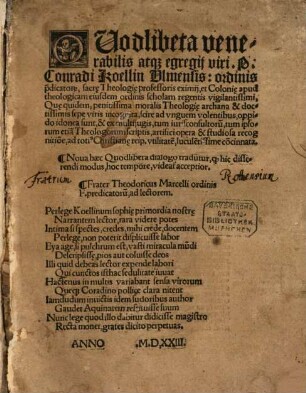 QUodlibeta vene-
rabilis atqȝ egregij viri. P.
Conradi Koellin Vlmensis: ordinis
p̄dicatorꝝ, sacrę Theologię professoris eximij, et Colonię apud
theologicam eiusdem ordinis scholam regentis vigilantissimi,
Que quidem, penitissima moralis Theologię archana & do-
ctissimis sepe viris incognita,
idonea sunt, & ex
etiā Theologorum scriptis, artifici opera & studiosa recog-
nitiōe, ad totiꝰ Christianę reip. vtilitatē, cōcinnata.
¶ Noua hæc Quodlibera dialogo traduntur, qꝫ hic, diffe-
rendi modus, hoc tempore, videat̄ acceptior.
Fratrum
Rothensian
¶ Frater Theodoricus Marcelli ordinis
F. predicatorū, ad lectorem.
BIBLIOTHECA
REGIA
MONACENSIS
Perlege Koellinum sophię primordia nostrę
Narrantem lector, rara videre potes
Intima si spectes, credes, mihi crede, docentem
Perlege, non poterit displicuisse labor
Eya age, si pulchrum est, vasti miracula mūdi
Descripsisse, pios aut coluisse deos
Illi quid debeas lector expende labori
Qui cunctos isthæc sedulitate iuuat
Hactenus in multis variabant sensa virorum
Quęqȝ Coradino pollice clara nitent
Iamdudum inuictis idem sudoribus author
Gaudet Aquinatem restituisse suum
Nunc lege quod illo dabitur didicisse magistro
Recta monet, grates dicito perpetuas.
ANNO M.D.XXIII.